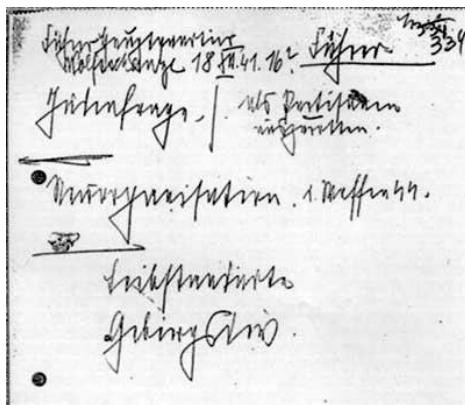 334
Führerhauptquartier
Wolfsschanze 18 XII.41. 16 Führer
Judenfrage. | als Partisanen
auszurotten.
Neuorganisation d. Waffen SS.
Leibstandarte
Gebirgsdiv.